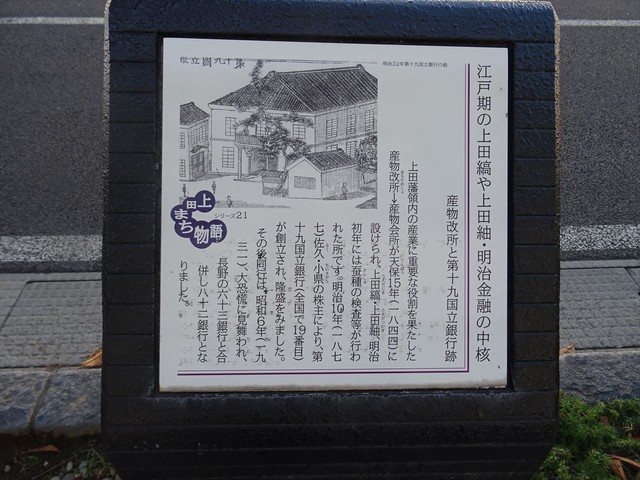 江戸期の上田縞や上田紬・明治金融の中核
産物改所と第十九国立銀行跡
上田藩領内の産業に重要な役割を果たした
産物改所→産物会所が天保15年(一八四四)に
設けられ、上田縞・上田紬、明治
初年には蚕種の検査等が行わ
れた所です。明治10年(一八七
七)佐久・小県の株主により、第
十九国立銀行(全国で19番目)
が創立され、隆盛をみました。
その後同行は、昭和6年(一九
三一)、大恐慌に見舞われ、
長野の六十三銀行と合
併し八十二銀行とな
りました。
明治22年第十九国立銀行の絵
行銀立國九十第
上田
まち
物語
シリーズ21